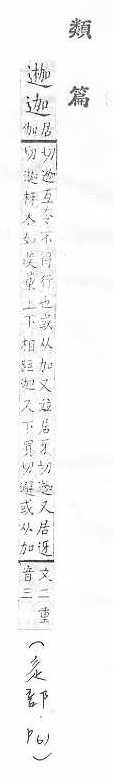 類篇
迦居伽
切互令不得行也或从加又竝居牙切又居迓
切枒木如蒺藜上下相距迦又下買切避或从加
文二重
音三
(辵部. P61)